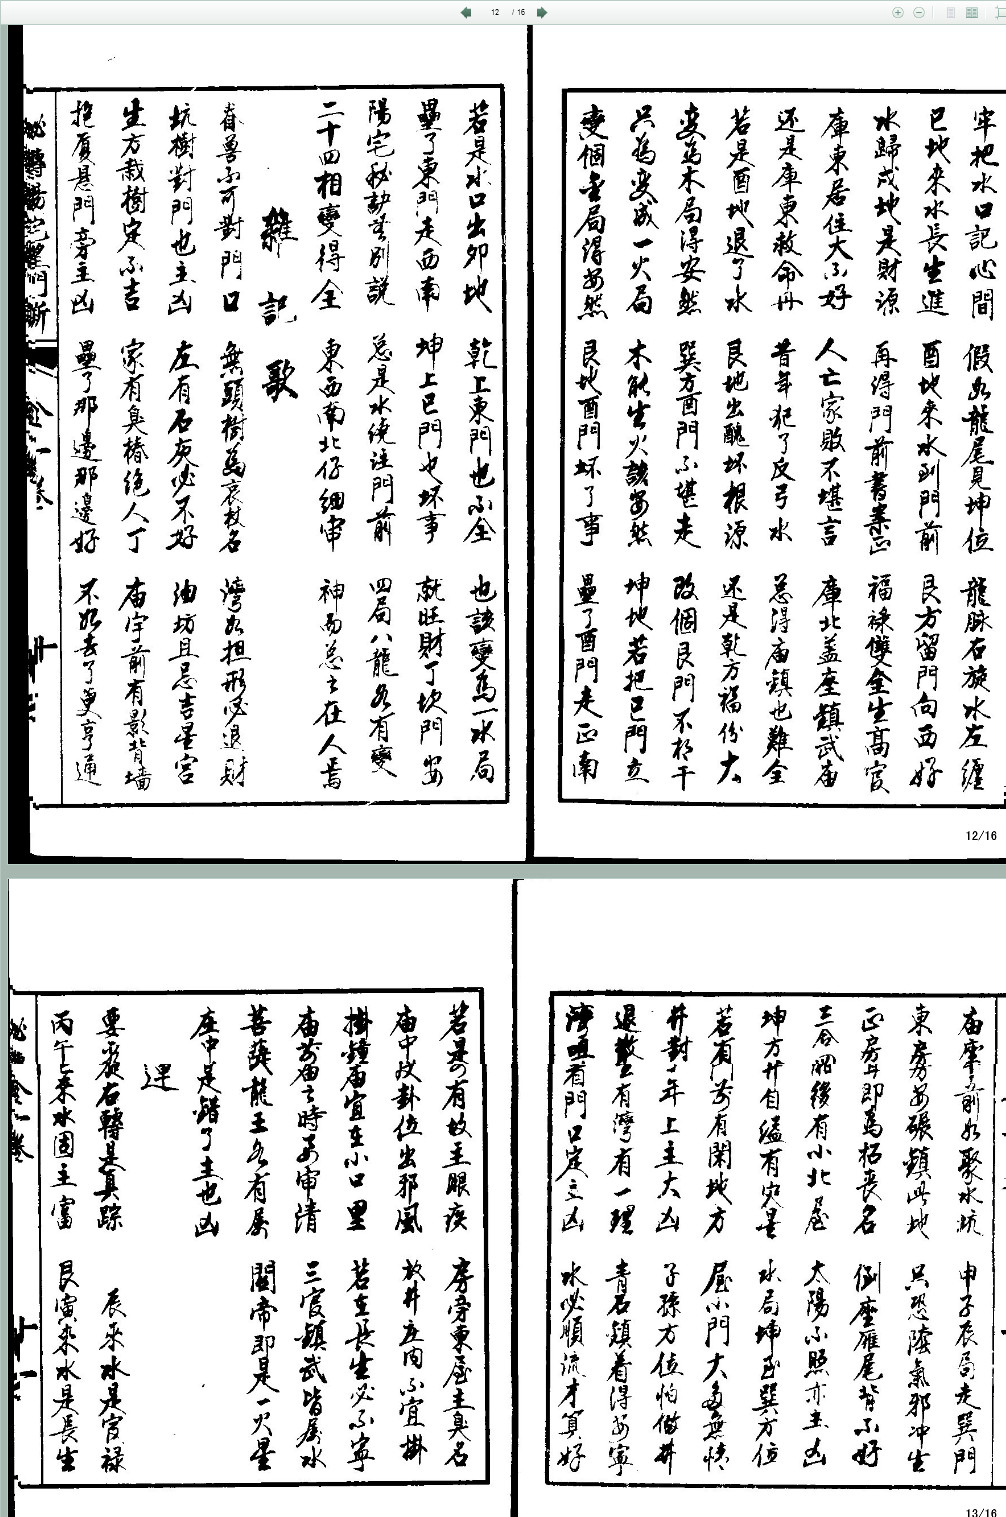 12 / 16
牢把水口記心間 假如龍尾見坤位 龍脉右旋水左纏
巳地来水長生進 酉地来水到門前 艮方留門向西好
水歸戌地是財源 再得門前書案正 福禄雙全生高官
庫東居住大不好 人亡家敗不堪言 庫北盖座鎮武庙
还是庫東救命丹 昔年犯了反弓水 总得庙鎮也難全
若是酉地退了水 艮地出醜坏根源 还是乾方福份大
变为木局得安然 巽方酉門不堪走 改個艮門不相干
只為变成一火局 木能生火該安然 坤地若把巳門立
变個金局得安然 艮地酉門坏了事 壘了酉門走正南
12/16
若是水口出卯地 乾上東門也不全 也該變為一水局
壘了東門走西南 坤上巳門也坏事 就旺財丁坎門安
陽宅秘訣無別説 总是水繞注門前 四局八龍各有變
二十四相變得全 東西南北仔細审 神而总之在人焉
雜記歌
眷兽不可對門口 無頭樹為哀杖名 湾如担形必退財
坑樹對門也主凶 左有石灰必不好 油坊且忌吉星宫
生方栽樹定不吉 家有臭椿绝人丁 庙宇前有影背墙
抱厦悬門旁主凶 壘了那邊那邊好 不如去了更亨通
庙庫前如聚水坑 申子辰局走巽門
東房安碾鎮此地 只恐陰氣邪冲生
正房五即為招喪名 倒座雁尾背不好
三合照後有小北屋 太陽不照亦主凶
坤方廾自缢有灾星 水局坤到巽方位
若有門前有閑地方 屋小門大多無情
井對子年上主大凶 子孫方位怕做井
退散它有湾有一理 青石鎮着得安寧
陰咀看門口定主凶 水必順流才算好
13/16
若是有故主眼疾 房旁東屋主臭名
庙中改卦位出邪風 放井庄内不宜掛
掛鐘庙宜在小口里 若在長生必不寧
庙前庙之時要审清 三官鎮武皆属水
菩薩龍王各有属 關帝即是一火星
座中是錯了主也凶
逆
要裁右轉是真踪 辰来水是官禄
丙午上来水固主富 艮寅来水是長生